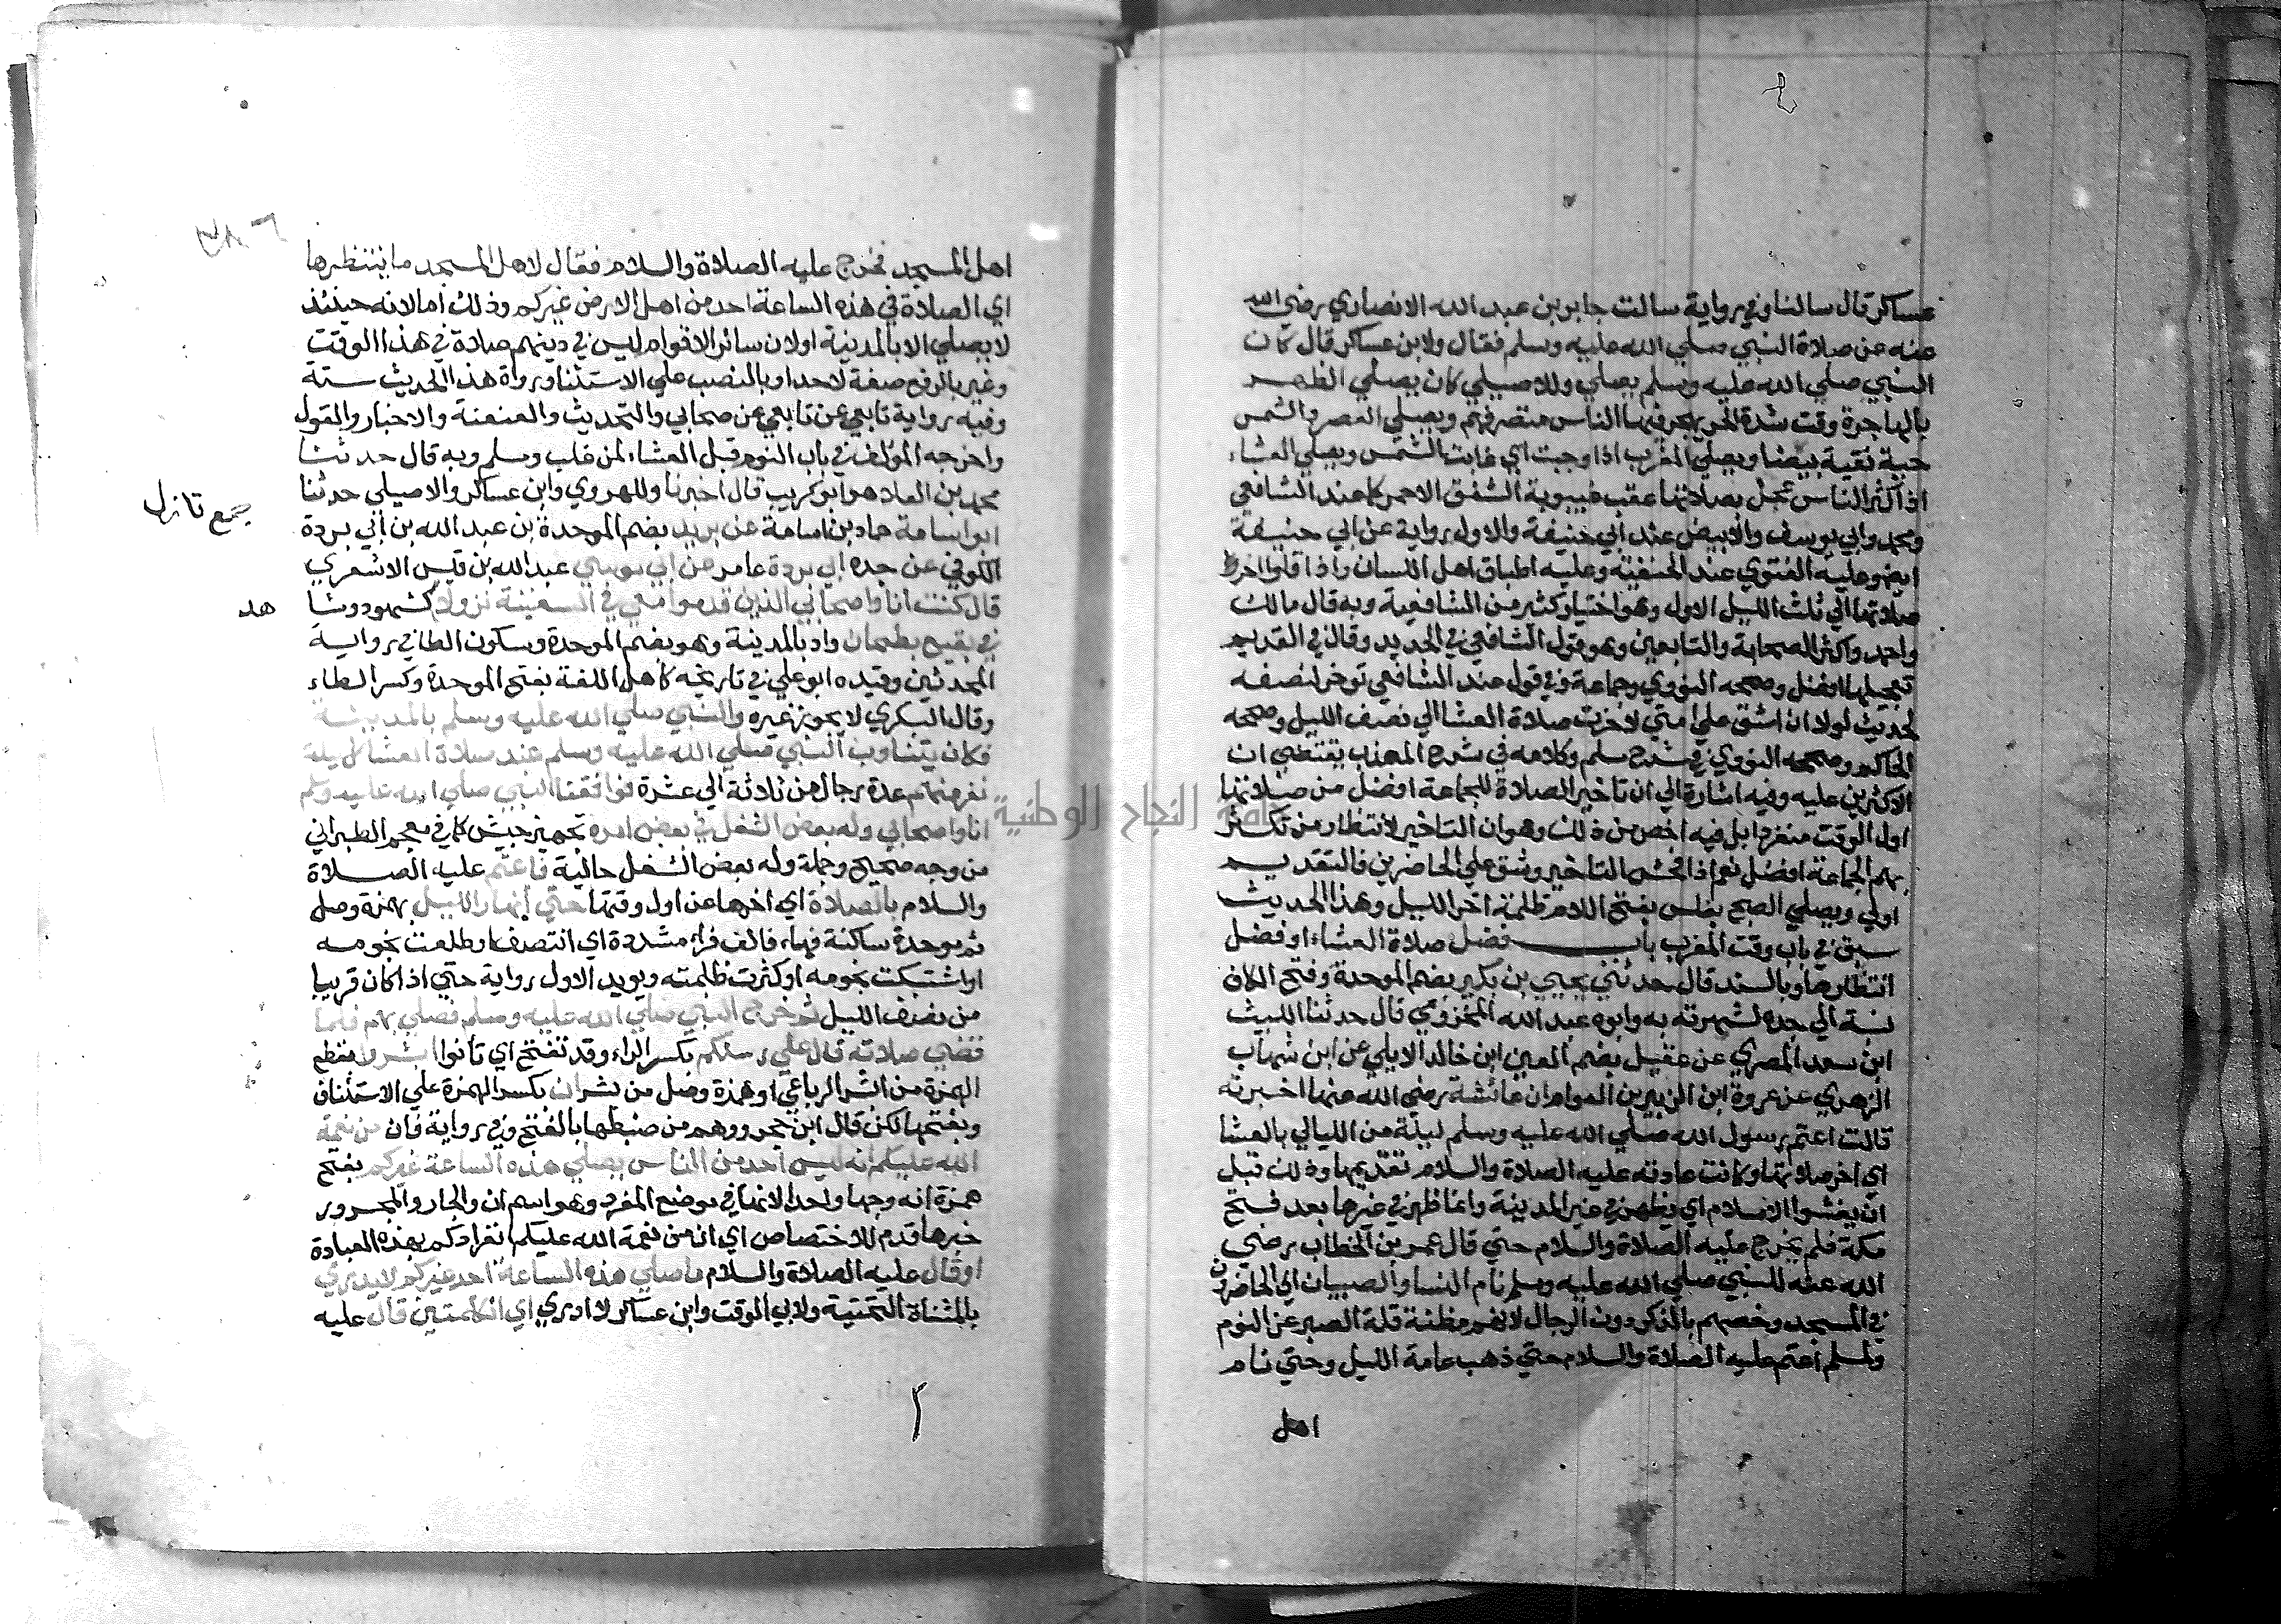 عساكر قال سالنا وفي رواية سالت جابر بن عبد الله الانصاري رضي الله
عنه عن صلاة النبي صلي الله عليه وسلم فقال ولابن عساكر قال كان
النبي صلي الله عليه وسلم يصلي وللاصيلي كان يصلي الظهر
بالهاجرة وقت شدة الحر يهجر فيها الناس منتصرفهم ويصلي العصر والشمس
حية نقية بيضا ويصلي المغرب اذا وجبت اي غابت الشمس ويصلي العشاء
اذا كثر الناس عجل بصلاتها عقب غيبوبة الشفق الاحمر كما عند الشافعي
ومحمد وابي يوسف والابيض عند ابي حنيفة والاول رواية عن ابي حنيفة
ايضا وعليه الفتوي عند الحنفية وعليه اطباق اهل اللسان واذا قلوا اخر
صلاتها الي ثلث الليل الاول وهو اختيار كثير من الشافعية وبه قال مالك
واحمد واكثر الصحابة والتابعين وهو قول الشافعي في الجديد وقال في القديم
تعجيلها افضل وصححه النووي وجماعة وفي قول عند الشافعي توخر لنصفه
لحديث لولا ان اشق علي امتي لاخرت صلاة العشا الي نصف الليل وصححه
الحاكم وصححه النووي في شرح مسلم وكلامه في شرح المهذب يقتضي ان
الاكثرين عليه وفيه اشارة الي ان تاخير الصلاة للجماعة افضل من صلاتها
اول الوقت منفردا بل فيه اخص من ذلك وهو ان التاخير لانتظار من تكثر
بهم الجماعة افضل نعم اذا فحش التاخير وشق علي الحاضرين فالتقديم
اولي ويصلي الصبح بغلس بفتح اللام ظلمة اخر الليل وهذا الحديث
سبق في باب وقت المغرب باب فضل صلاة العشاء او فضل
انتظارها وبالسند قال حدثني يحيي بن بكير بضم الموحدة وفتح الكاف
نسبة الي جده لشهرته به وابوه عبد الله المخزومي قال حدثنا الليث
ابن سعد المصري عن عقيل بضم العين ابن خالد الايلي عن ابن شهاب
الزهري عن عروة ابن الزبير بن العوام ان عائشة رضي الله عنها اخبرته
قالت اعتم رسول الله صلي الله عليه وسلم ليلة من الليالي بالعشا
اي اخر صلاتها وكانت عادته عليه الصلاة والسلام تقديمها وذلك قبل
ان يفشوا الاسلام اي يظهر في غير المدينة وانما ظهر في غيرها بعد فتح
مكة فلم يخرج عليه الصلاة والسلام حتي قال عمر بن الخطاب رضي
الله عنه للنبي صلي الله عليه وسلم نام النسا والصبيان اي الحاضرون
في المسجد وخصهم بالذكر دون الرجال لانهم مظنة قلة الصبر عن النوم
ولمسلم اعتم عليه الصلاة والسلام حتي ذهب عامة الليل وحتي نام
اهل
اهل المسجد فخرج عليه الصلاة والسلام فقال لاهل المسجد ما ينتظرها
اي الصلاة في هذه الساعة احد من اهل الارض غيركم وذلك اما لانه حينئذ
لا يصلي الا بالمدينة او لان سائر الاقوام ليس في دينهم صلاة في هذا الوقت
وغير بالرفع صفة لاحد او بالنصب علي الاستثنا ورواة هذا الحديث ستة
وفيه رواية تابعي عن تابعي عن صحابي والتحديث والعنعنة والاخبار والقول
واخرجه المؤلف في باب النوم قبل العشاء لمن غلب ومسلم وبه قال حدثنا
محمد بن العلا هو ابو كريب قال اخبرنا وللهروي وابن عساكر والاصيلي حدثنا
ابو اسامة حماد بن اسامة عن بريد بضم الموحدة بن عبد الله بن ابي بردة
الكوفي عن جده ابي بردة عامر عن ابي موسي عبد الله بن قيس الاشعري
قال كنت انا واصحابي الذين قدموا معي في السفينة نزولا كشهود وشا
هد
جمع نازل
في بقيع بطحان واد بالمدينة وهو بضم الموحدة وسكون الطا في رواية
المحدثين وقيده ابو علي في تاريخه كاهل اللغة بفتح الموحدة وكسر الطاء
وقال البكري لا يجوز غيره والنبي صلي الله عليه وسلم بالمدينة
فكان يتناوب النبي صلي الله عليه وسلم عند صلاة العشا كل ليلة
نفر منهم عدة رجال من ثلاثة الي عشرة فوافقنا النبي صلي الله عليه وسلم
انا واصحابي وله بعض الشغل في بعض امره تجهيز جيش كما في معجم الطبراني
من وجه صحيح وجملة وله بعض الشغل حالية فاعتم عليه الصلاة
والسلام بالصلاة اي اخرها عن اول وقتها حتي ابهار الليل بهمزة وصل
ثم موحدة ساكنة فهاء فالف فراء مشددة اي انتصف او طلعت نجومه
او اشتبكت نجومه او كثرت ظلمته ويويد الاول رواية حتي اذا كان قريبا
من نصف الليل ثم خرج النبي صلي الله عليه وسلم فصلي بهم فلما
قضي صلاته قال علي رسلكم بكسر الراء وقد تفتح اي تانوا ابشروا بقطع
الهمزة من ابشر الرباعي او همزة وصل من بشر ان بكسر الهمزة علي الاستئناف
وبفتحها لكن قال ابن حجر ووهم من ضبطها بالفتح وفي رواية فان من نعمة
الله عليكم انه ليس احد من الناس يصلي هذه الساعة غيركم بفتح
همزة انه وجها واحدا لانها في موضع المفرد وهو اسم ان والجار والمجرور
خبرها قدم للاختصاص اي ان من نعمة الله عليكم انفرادكم بهذه العبادة
او قال عليه الصلاة والسلام ما صلي هذه الساعة احد غيركم لا يدري
بالمثناة التحتية ولابي الوقت وابن عساكر لا ادري اي الكلمتين قال عليه
جامعة النجاح الوطنية